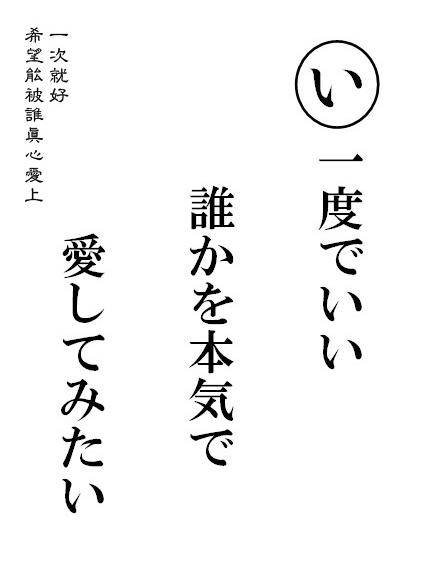 い
一度でいい
誰かを本気で
愛してみたい
一次就好
希望能被誰眞心愛上